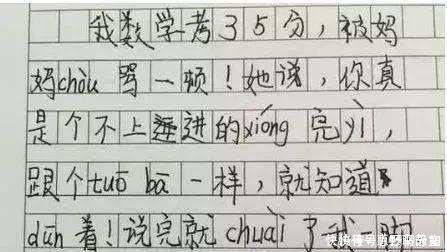 我数学考35分，被妈
妈chòu 骂一顿！她说，你真
是个不上进的xióng 完yì，
跟个tuō bā 一样，就知道
dūn 着！说完就 chuài 了我一脚